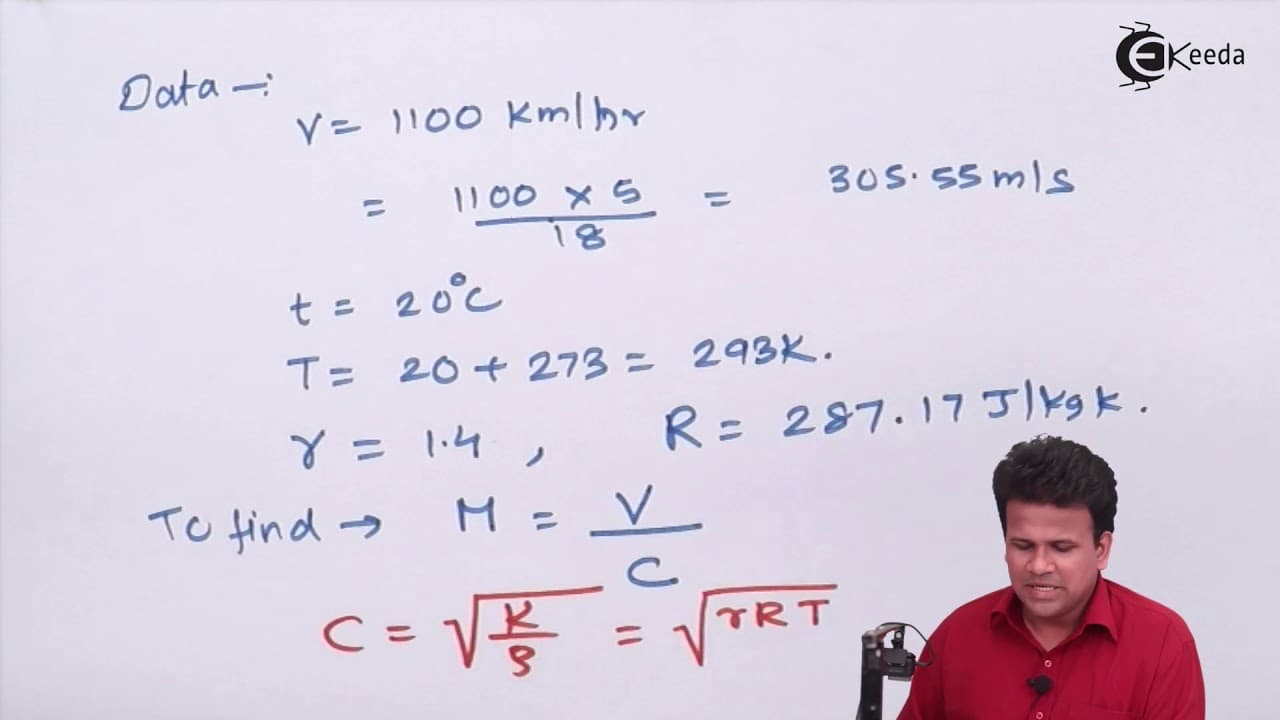 EKeeda
Data –:
V = 1100 Km/hr
= 1100 × 5 / 18 = 305.55 m/s
t = 20°C
T = 20 + 273 = 293K.
γ = 1.4 , R = 287.17 J/kgk.
To find → M = V / C
C = √(K/ρ) = √(γRT)